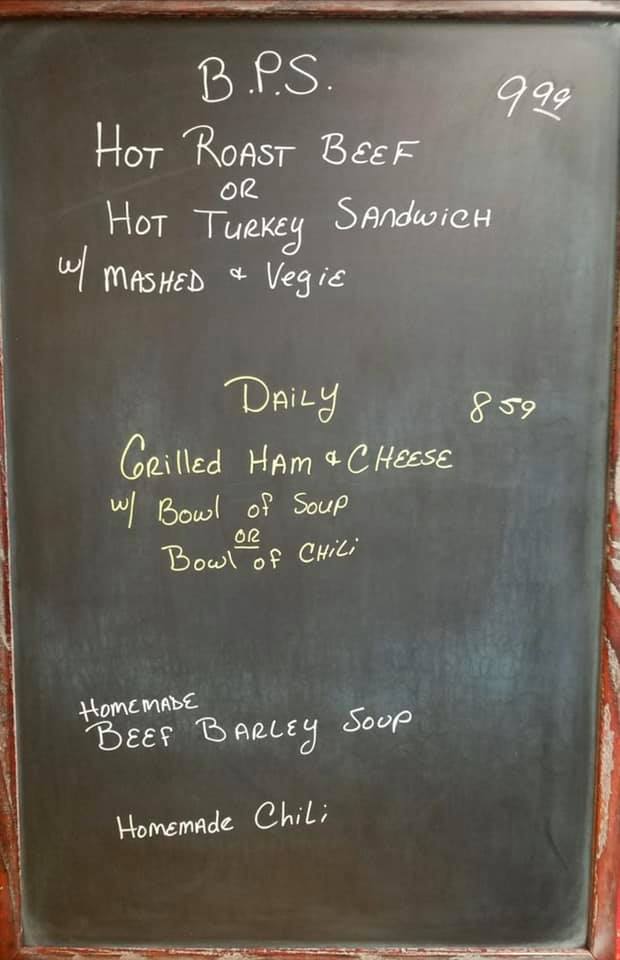 B.P.S.
9 99
HOT ROAST BEEF
OR
HOT TURKEY SANdwiCH
w/ MASHED & VegiE
DAiLY
8 59
GRilled HAM & CHEESE
w/ Bowl of Soup
OR
Bowl of CHiLi
HOMEMADE
BEEF BARLEY SOUP
HOMEMAde CHiLi